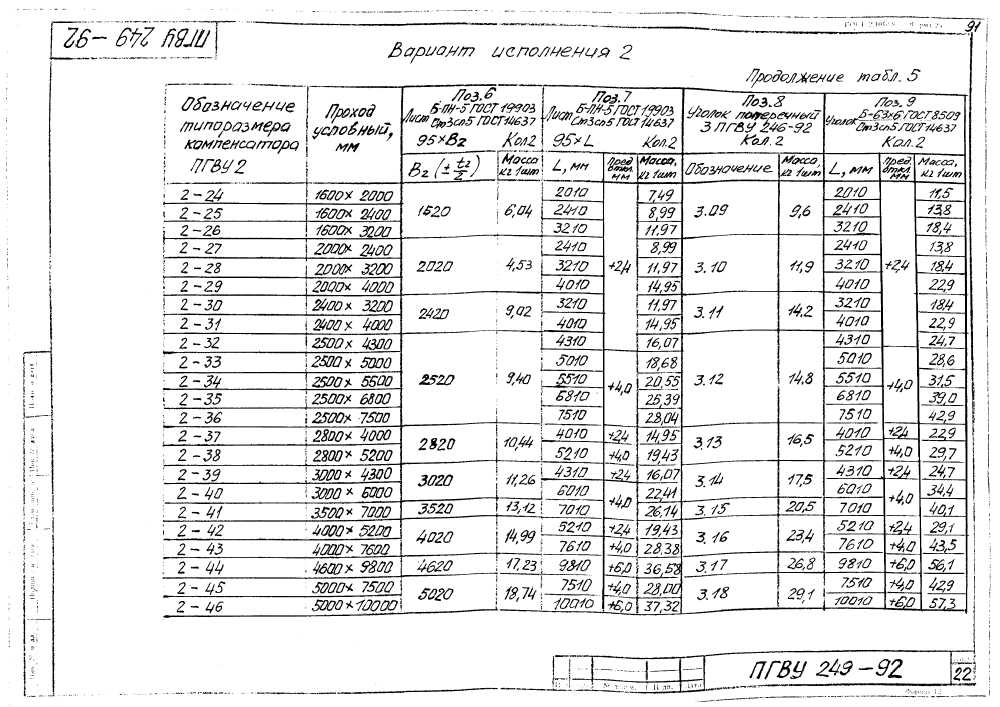 91
ПГВУ 249-92
Вариант исполнения 2
Продолжение табл. 5
Обозначение типоразмера компенсатора ПГВУ 2 | Проход условный, мм | Поз. 6 Лист Б-ПН-5 ГОСТ 19903 Ст3сп5 ГОСТ 14637 95×В2 Кол.2 | Поз. 7 Лист Б-ПН-5 ГОСТ 19903 Ст3сп5 ГОСТ 14637 95×L Кол.2 | Поз. 8 Уголок поперечный 3 ПГВУ 246-92 Кол. 2 | Поз. 9 Уголок Б-63×6 ГОСТ 8509 Ст3сп5 ГОСТ 14637 Кол. 2
В2 (± t2/2) | Масса кг 1шт | L, мм | Пред откл. мм | Масса, кг 1шт | Обозначение | Масса, кг 1шт | L, мм | Пред откл. мм | Масса, кг 1шт
2-24 1600×2000 1520 6,04 2010 +2,4 7,49 3.09 9,6 2010 +2,4 11,5
2-25 1600×2400 2410 8,99 2410 13,8
2-26 1600×3200 3210 11,97 3210 18,4
2-27 2000×2400 2020 4,53 2410 8,99 3.10 11,9 2410 13,8
2-28 2000×3200 3210 11,97 3210 18,4
2-29 2000×4000 4010 14,95 4010 22,9
2-30 2400×3200 2420 9,02 3210 11,97 3.11 14,2 3210 18,4
2-31 2400×4000 4010 14,95 4010 22,9
2-32 2500×4300 2520 9,40 4310 16,07 3.12 14,8 4310 24,7
2-33 2500×5000 5010 +4,0 18,68 5010 +4,0 28,6
2-34 2500×5500 5510 20,55 5510 31,5
2-35 2500×6800 6810 25,39 6810 39,0
2-36 2500×7500 7510 28,04 7510 42,9
2-37 2800×4000 2820 10,44 4010 +2,4 14,95 3.13 16,5 4010 +2,4 22,9
2-38 2800×5200 5210 +4,0 19,43 5210 +4,0 29,7
2-39 3000×4300 3020 11,26 4310 +2,4 16,07 3.14 17,5 4310 +2,4 24,7
2-40 3000×6000 6010 +4,0 22,41 6010 +4,0 34,4
2-41 3500×7000 3520 13,12 7010 26,14 3.15 20,5 7010 40,1
2-42 4000×5200 4020 14,99 5210 +2,4 19,43 3.16 23,4 5210 +2,4 29,1
2-43 4000×7600 7610 +4,0 28,38 7610 +4,0 43,5
2-44 4600×9800 4620 17,23 9810 +6,0 36,58 3.17 26,8 9810 +6,0 56,1
2-45 5000×7500 5020 18,74 7510 +4,0 28,00 3.18 29,1 7510 +4,0 42,9
2-46 5000×10000 10010 +6,0 37,32 10010 +6,0 57,3
ПГВУ 249-92
22